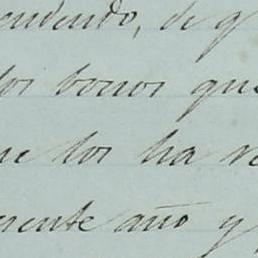 endiendo, de q
los bonos que
ue los ha re
rente año y